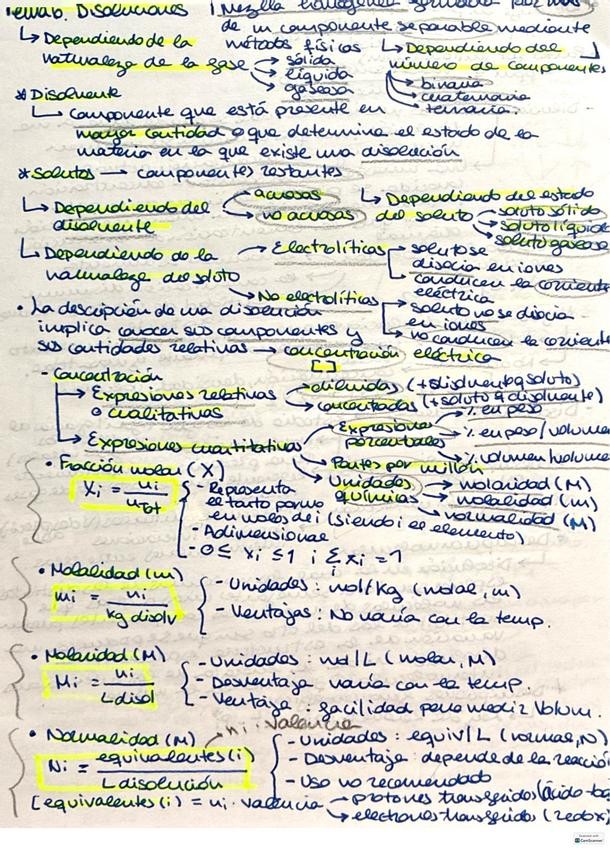 Tema 6. Disoluciones
Mezcla homogénea formada por más
de un componente separable mediante
métodos físicos
↳ Dependiendo de la
naturaleza de la fase
→ sólida
→ líquida
→ gaseosa
↳ Dependiendo del
número de componentes
→ binaria
→ cuaternaria
→ ternaria.
* Disolvente
↳ componente que está presente en
mayor cantidad o que determina el estado de la
materia en la que existe una disolución
* Solutos → componentes restantes
↳ Dependiendo del
disolvente
→ acuosas
→ no acuosas
↳ Dependiendo del estado
del soluto
→ soluto sólido
→ soluto líquido
→ soluto gaseoso
↳ Dependiendo de la
naturaleza del soluto
→ Electrolíticas
→ soluto se
disocia en iones
→ conducen la corriente
eléctrica
→ No electrolíticas
→ soluto no se disocia
en iones
→ no conducen la corriente
eléctrica
• La descripción de una disolución
implica conocer sus componentes y
sus cantidades relativas → concentración
[ ]
- Concentración
→ Expresiones relativas
o cualitativas
→ diluidas (+disolvente q soluto)
→ concentradas (+soluto q disolvente)
→ Expresiones cuantitativas
→ Expresiones
porcentuales
→ % en peso
→ % en peso/volumen
→ % volumen/volumen
→ Partes por millón
→ Unidades
químicas
→ molaridad (M)
→ molalidad (m)
→ normalidad (N)
• Fracción molar (X)
Xi = ni / nTot
- Representa
el tanto por uno
en moles de i (siendo i el elemento)
- Adimensional
- 0 ≤ xi ≤ 1 i Σ xi = 1
• Molalidad (m)
mi = ni / kg disolv
- Unidades: mol/kg (molal, m)
- Ventajas: No varía con la temp.
• Molaridad (M)
Mi = ni / L disol
- Unidades: mol/L (molar, M)
- Desventaja varía con la temp.
- Ventaja: facilidad para medir Volum.
• Normalidad (N)
ni · valencia
Ni = equivalentes (i) / L disolución
- Unidades: equiv/L (normal, N)
- Desventaja: depende de la reacción
- Uso no recomendado
[equivalentes (i) = ni · valencia
→ protones transferidos (ácido-ba
→ electrones transferidos (redox)
Scanned with
CamScanner